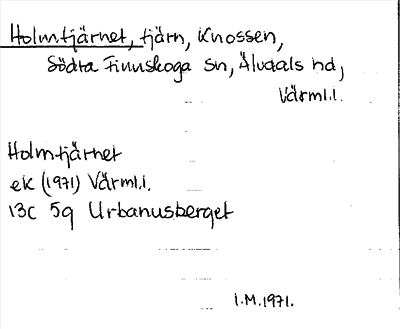 Holmtjärnet, tjärn, Knossen,
Södra Finnskoga sn, Älvdals hd,
Värml.l.
Holmtjärnet
ek (1971) Värml.l.
13C 5g Urbanusberget
I.M.1971.